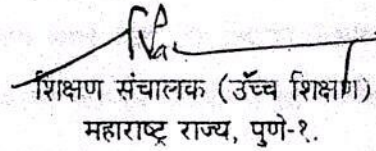 शिक्षण संचालक (उॅच्च शिक्षण)
महाराष्ट्र राज्य, पुणे-१.